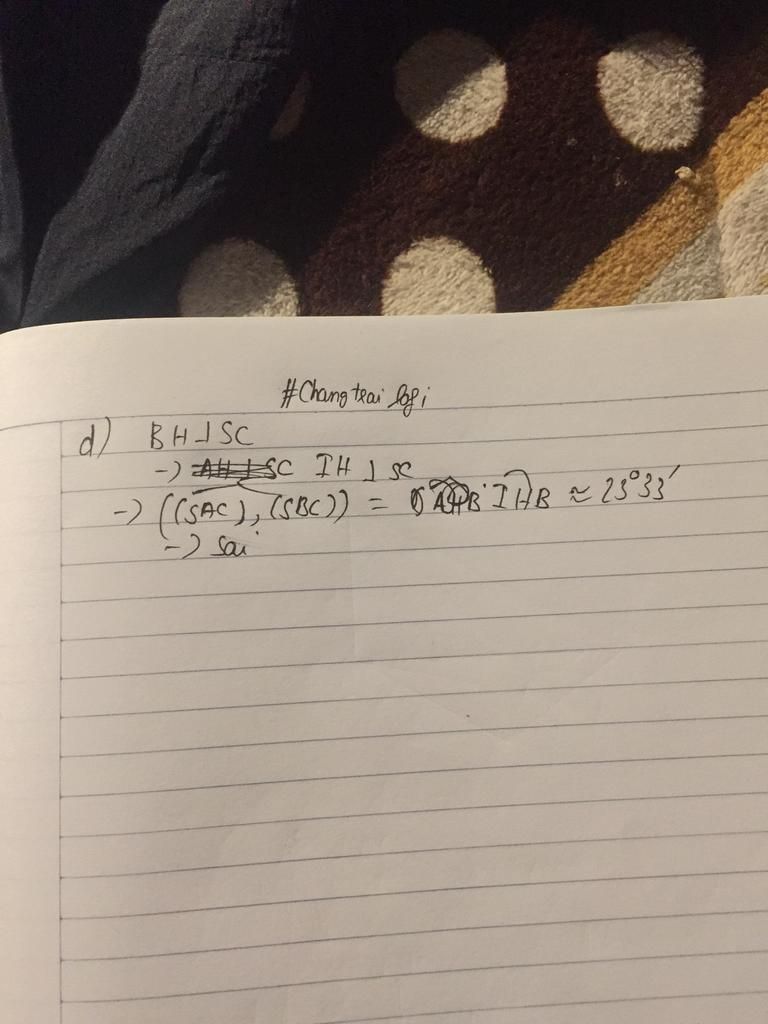 #Changtrai
d) BH ⊥ SC
-) SC IH ⊥ SC
-) ((SAC), (SBC)) = IHB ≈ 23°33'
-) Sai